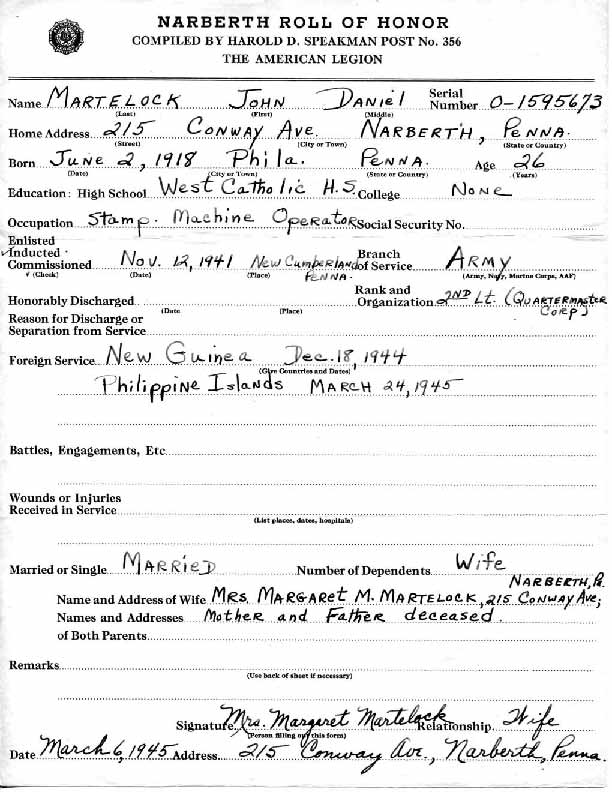 NARBERTH ROLL OF HONOR
COMPILED BY HAROLD D. SPEAKMAN POST No. 356
THE AMERICAN LEGION
Name MARTELOCK JOHN DANIEL Serial Number O-1595673
(Last) (First) (Middle)
Home Address 215 CONWAY AVE. NARBERTH, PENNA.
(Street) (City or Town) (State or Country)
Born JUNE 2, 1918 Phila. PENNA. Age 26
(Date) (City or Town) (State or Country) (Years)
Education: High School West Catholic H.S. College NONE
Occupation Stamp. Machine Operator Social Security No.
Enlisted
✓Inducted
Commissioned Nov. 12, 1941 NEW CUMBERLAND PENNA. Branch of Service ARMY
√ (Check) (Date) (Place) (Army, Navy, Marine Corps, AAF)
Honorably Discharged Rank and Organization 2ND Lt. (QUARTERMASTER CORP)
(Date (Place)
Reason for Discharge or
Separation from Service
Foreign Service New Guinea Dec. 18, 1944
(Give Countries and Dates)
Philippine Islands MARCH 24, 1945
Battles, Engagements, Etc.
Wounds or Injuries
Received in Service
(List places, dates, hospitals)
Married or Single MARRIED Number of Dependents Wife
NARBERTH, Pa.
Name and Address of Wife MRS. MARGARET M. MARTELOCK, 215 CONWAY AVE,
Names and Addresses Mother and Father deceased.
of Both Parents
Remarks
(Use back of sheet if necessary)
Signature Mrs. Margaret Martelock Relationship Wife
(Person filling out this form)
Date March 6, 1945 Address 215 Conway Ave., Narberth, Penna.